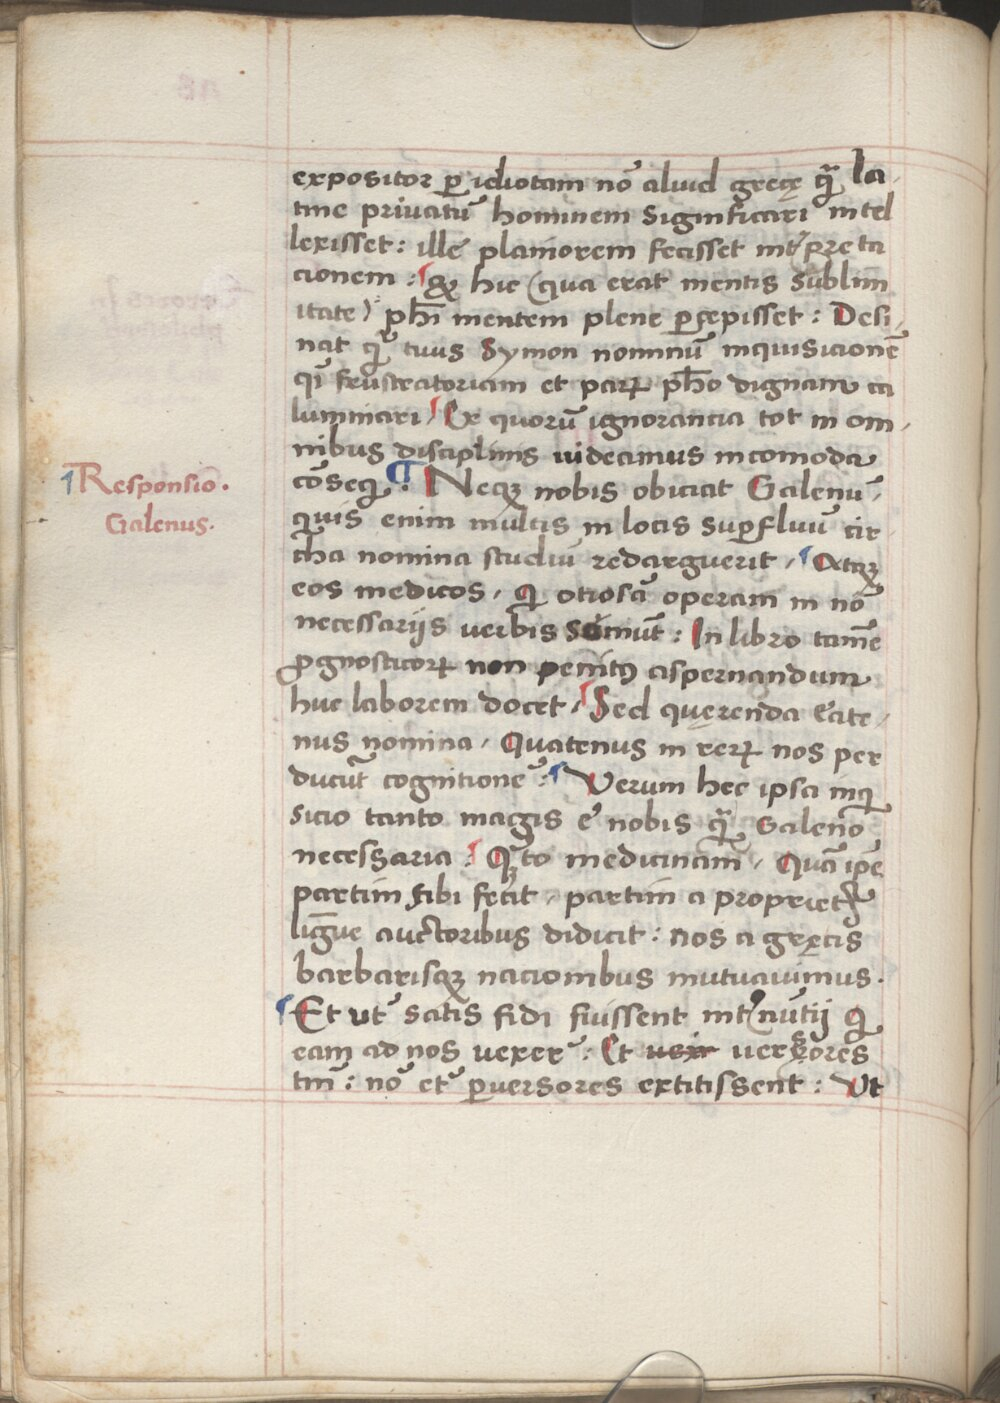 expositor ꝑ idiotam nō aliud gręcę q̄ꝫ la-
tine priuatū hominem significari intel
lexisset: ille planiorem fecisset int̓preta
cionem: ¶ Et hic (qua erat mentis sublim
itate) ph̄i mentem plene ꝑcepisset: Desi-
nat q̄ tuus Symon nominū inquisicionē
q̄ frustratoriam et parꝝ ph̄o dignam ca
luminari / Ex quorū ignorancia tot in om-
nibus disciplinis uidecimus incomoda
cōseq̄. ¶ Neqꝫ nobis obiciat Galenū,
¶ Responsio.
Galenus.
quis enim multis in locis suꝑfluū cir-
cha nomina studiū redarguerit / ¶ Atqꝫ
eos medicos, q̄ otiosā operam in nō
necessariis uerbis sumūt: In libro tamē
ꝓgnosticorꝝ non penitꝰ aspernandum
huc laborem docet, ¶ Sed quęrenda eate-
nus nomina, Quatenus in rerꝝ nos per
ducūt cognitionē: ¶ Verum hec ipsa inq̄
sicio tanto magis ē nobis q̄ꝫ Galeno
necessaria: ¶ Qꝫto medicinam, Quā ip̄e
partim sibi fecit, partim a propriet̄
lingūe auctoribus didicit: nos a gręcis
barbarisqꝫ nacionibus mutuauimus.
¶ Et ut̄ satis fidi fuissent int̓nūtij q̄
eam ad nos uexer̄: Et uersores
tm̄: nō et̄ ꝑuersores extitissent: Ut